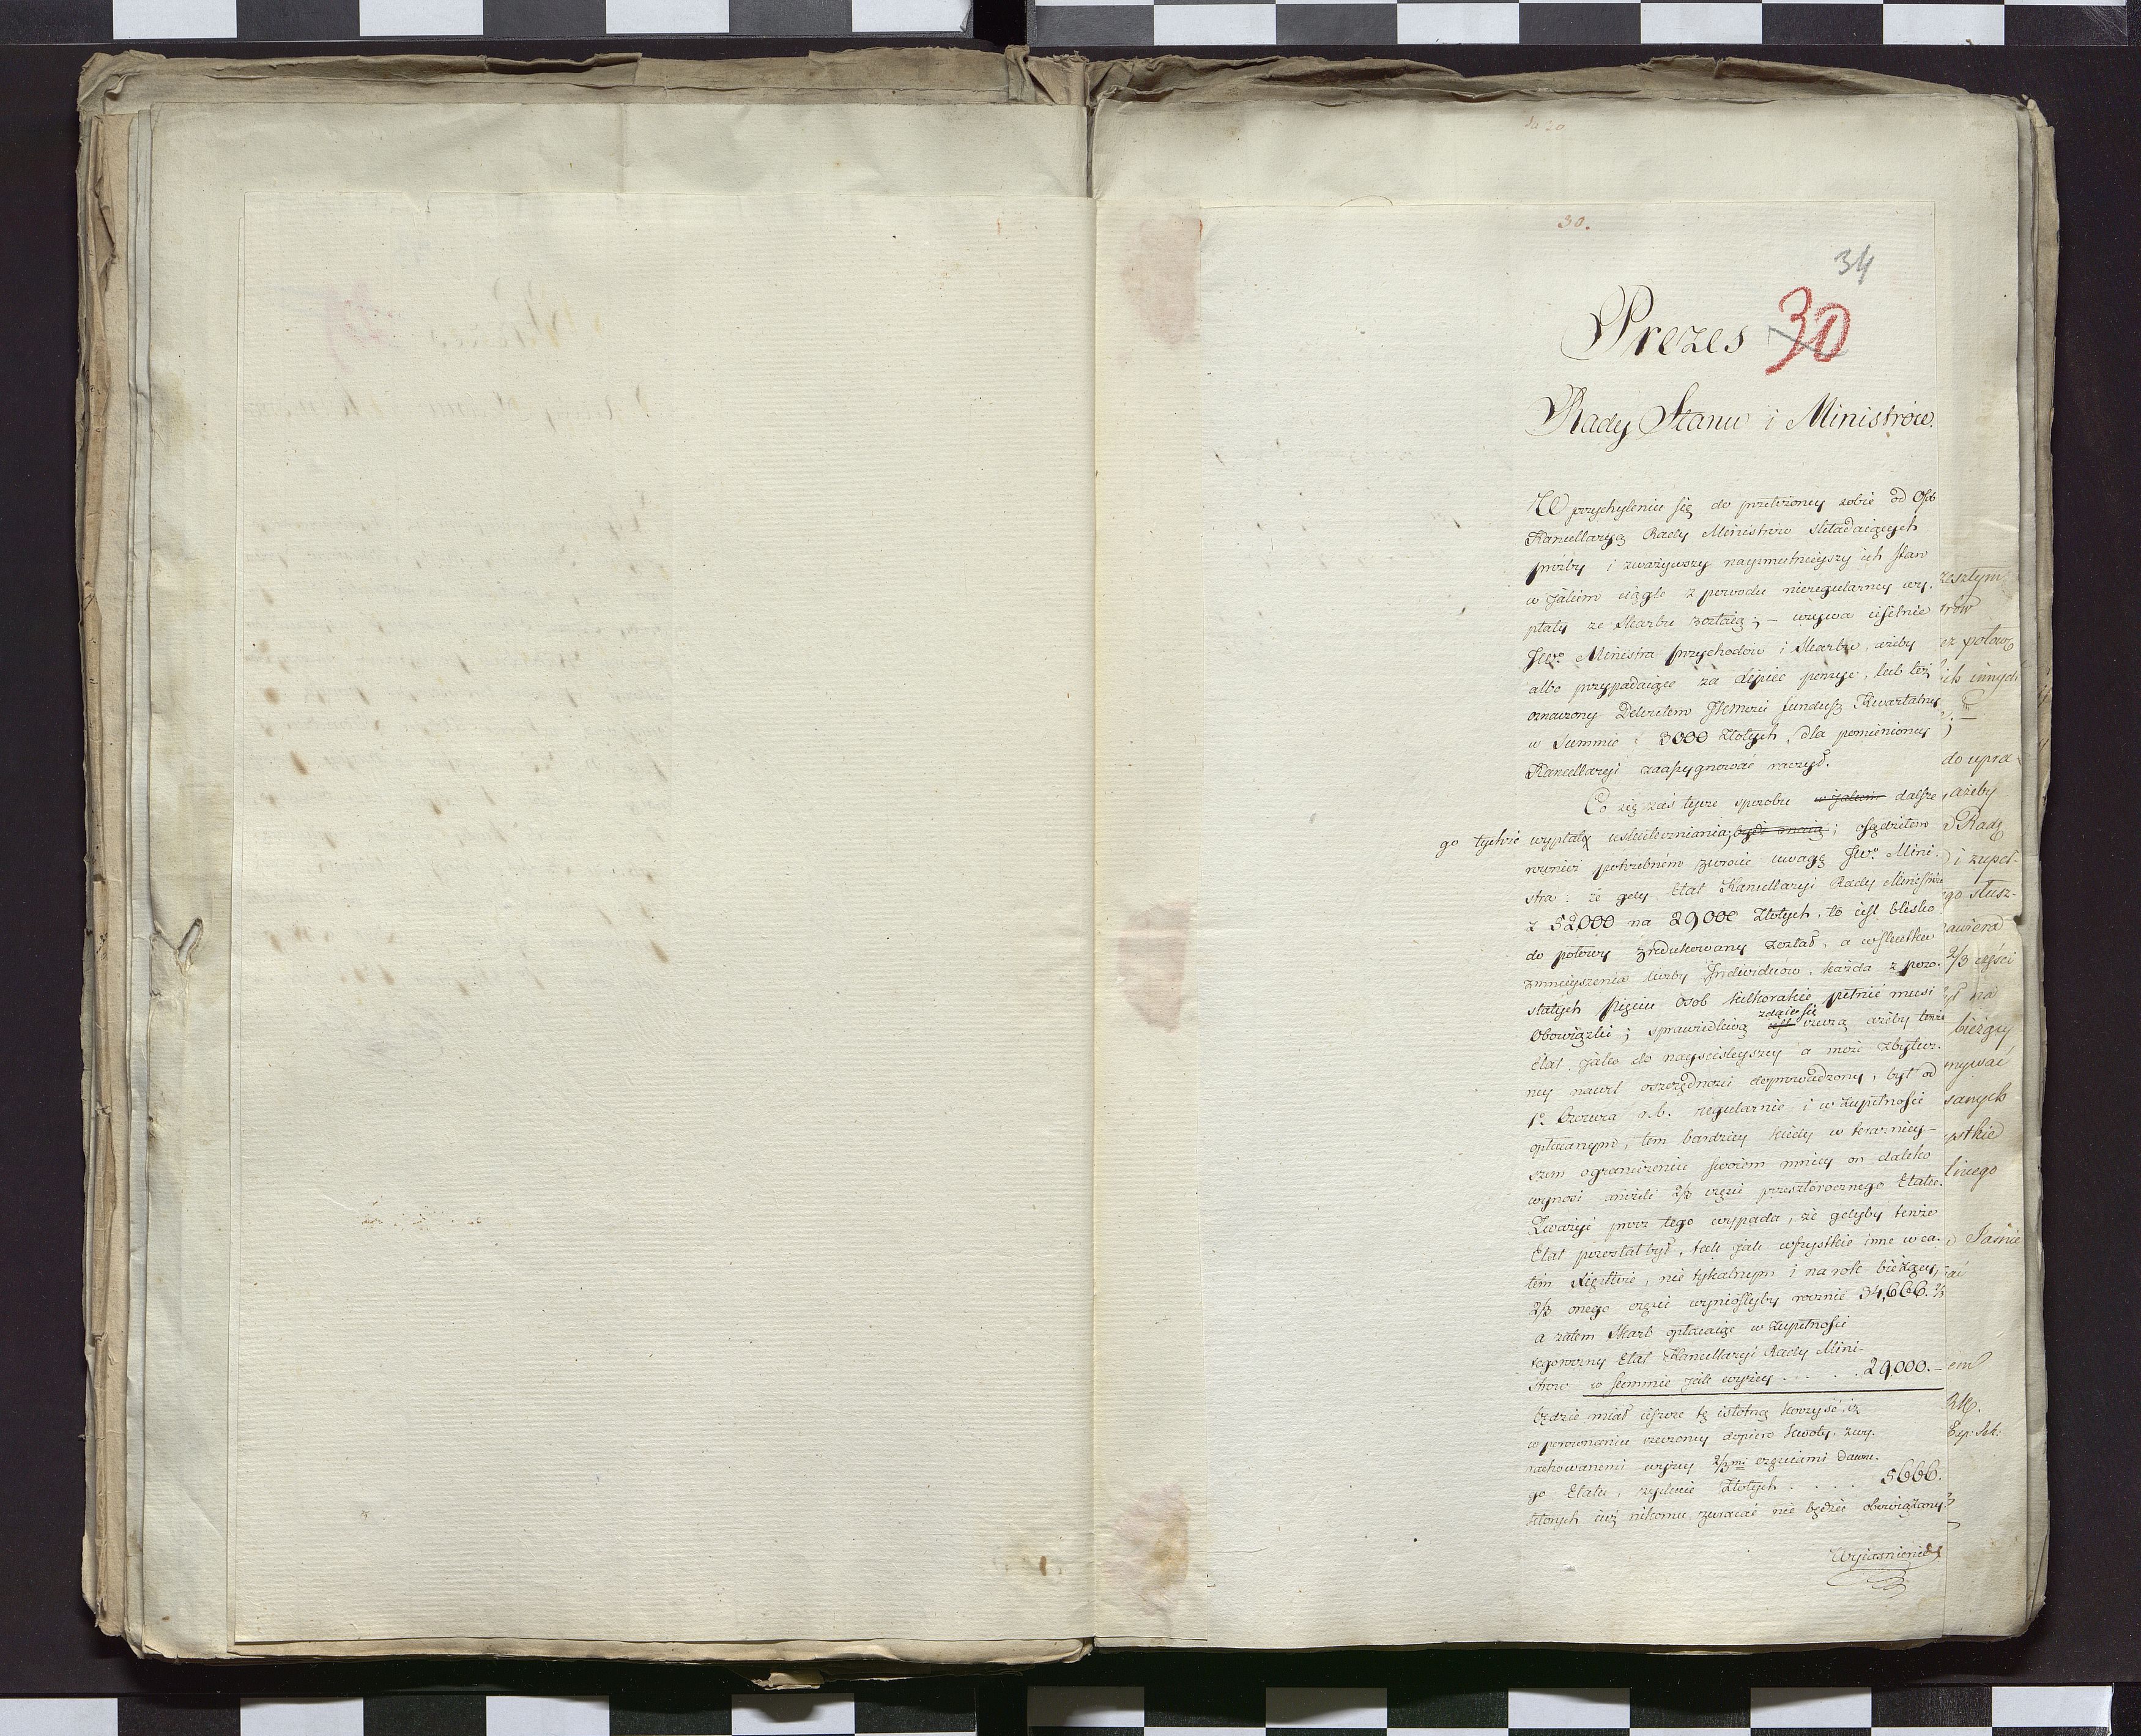 30.
34
30
Prezes
Rady Stanu i Ministrów.
W przychyleniu się do przełożoney sobie od Osób
Kancellaryą Rady Ministrów składaiących
proźby i zważywszy naysmutnieyszy ich stan
w jakim ciągle z powodu nieregularney wy-
płaty ze Skarbu zostaią; – wzywa usilnie
JW°. Ministra przychodów i Skarbu, ażeby
albo przypadaiące za Lipiec pensye, lub też
oznaczony Dekretem fundusz Kwartalny
w Summie 3000 Złotych, dla pomienioney
Kancellaryi zaassygnować raczył.
Co się zaś tycze sposobu w jakim dalsze
go tychże wypłaty uskuteczniania; być maią; osądziłem
również potrzebném zwrócić uwagę JW°. Mini-
stra: że gdy Etat Kancellaryi Rady Ministrów
z 52,000 na 29000 Złotych, to iest blisko
do połowy zredukowany został, a wskutku
zmnieyszenia liczby Individuów, każda z pozo-
stałych Pięciu Osób kilkorakie pełnić musi
zdaie się
Obowiązki; sprawiedliwą iest rzeczą ażeby tenże
Etat, jako do nayściśleyszey a może zbytecz-
ney nawet oszczędności doprowadzony, był od
1°. Czerwca r.b. regularnie i w zupełności
opłacanym, tem bardziey kiedy w teraźniey-
szem ograniczeniu swoiem mniey on daleko
wynosi aniżeli 2/3 części przeszłorocznego Etatu.
Zważyć prócz tego wypada, że gdyby tenże
Etat pozostał był, tak jak wszystkie inne w ca-
łém Xięztwie, nie tykalnym i na rok bieżący,
2/3 onego części wyniosłyby rocznie 34,666. 2/3
a zatem Skarb opłacaiąc w zupełności
tegoroczny Etat Kancellaryi Rady Mini-
strow w summie jak wyżey . . . . 29,000.–
będzie miał ieszcze tę istotną korzyść, iż
w porownaniu rzeczoney dopiero kwoty, z wy-
rachowanemi wyżey 2/3mi częściami dawne-
go Etatu, zyskuie Złotych . . . . 5666.
których iuż nikomu zwracać nie będzie obowiązany.
Wyiaśnienie